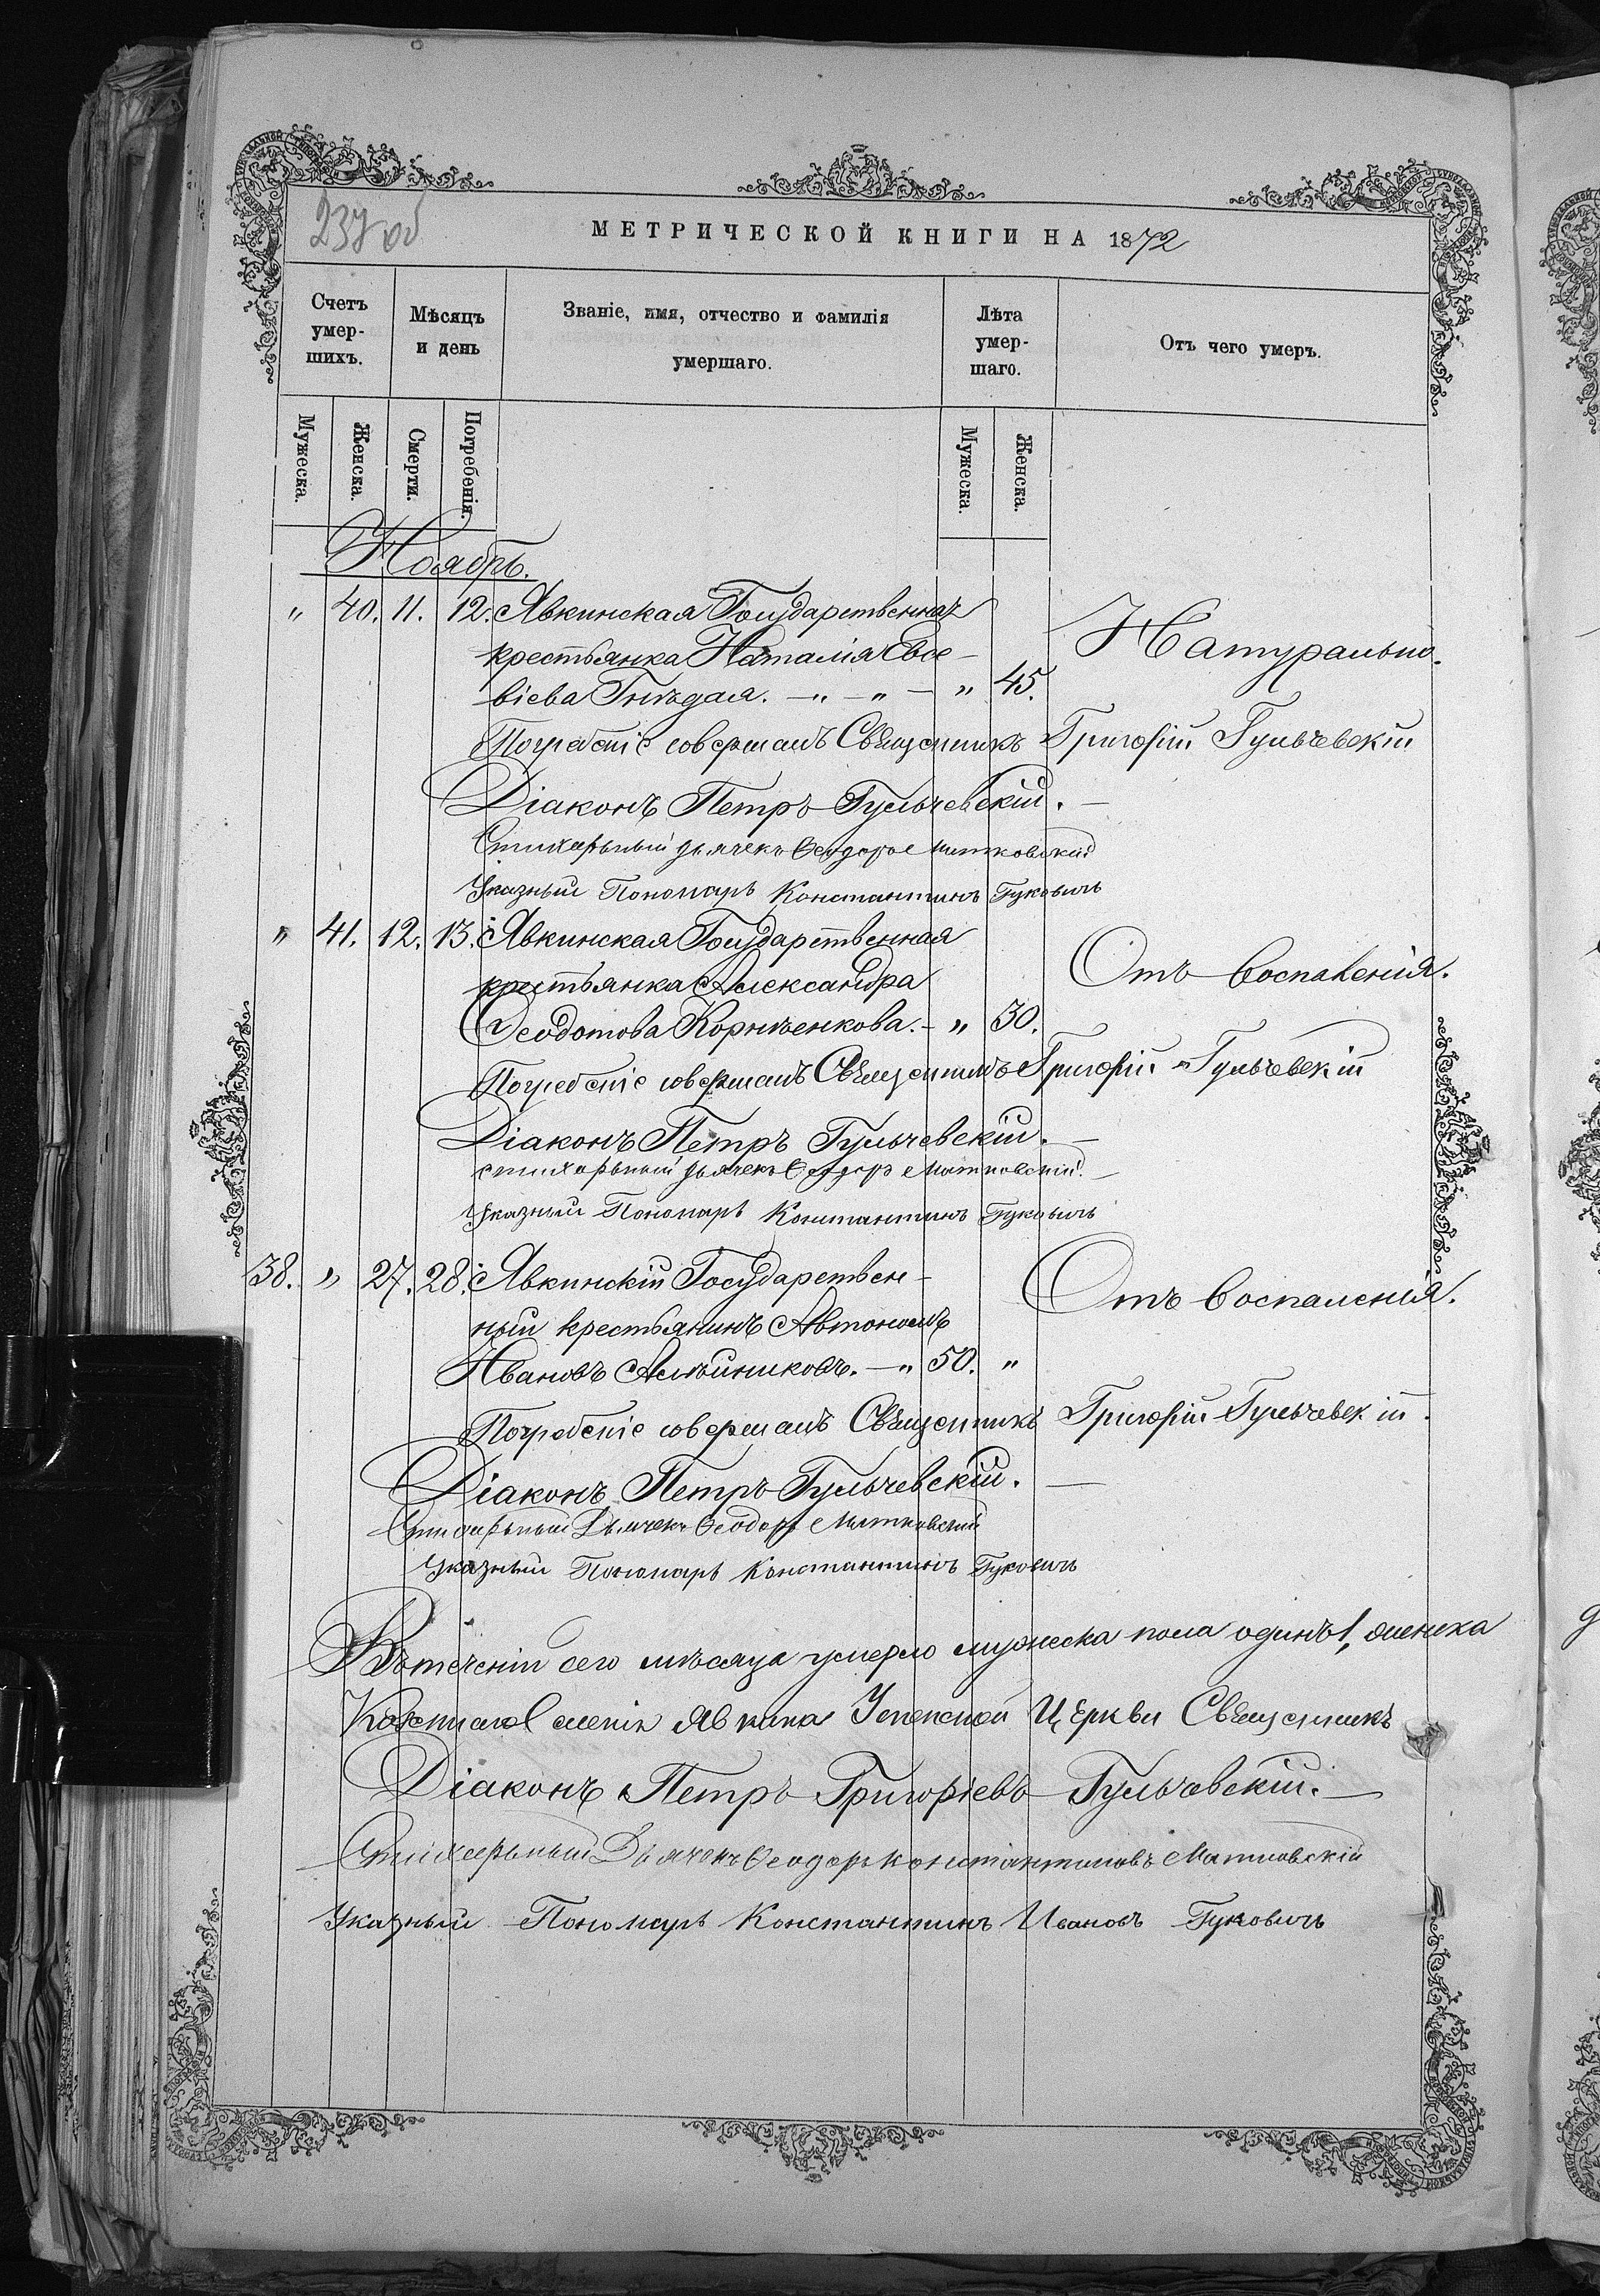 237 об
МЕТРИЧЕСКОЙ КНИГИ НА 1872
Счетъ умер-шихъ.
Мѣсяцъ и день
Званіе, имя, отчество и фамилія умершаго.
Лѣта умер-шаго.
Отъ чего умеръ.
Мужеска.
Женска.
Смерти.
Погребенія.
Мужеска.
Женска.
Ноябрь.
" 40. 11. 12. Явкинская Государственная
крестьянка Наталія Евсе-
віева Гнѣдая. - " - " - " 45. Натурально.
Погребеніе совершалъ Священникъ Григорій Гульчевскій
Діаконъ Петръ Гульчевскій. -
Стихарный дьячекъ Ѳеодоръ Матковскій
Указный Пономарь Константинъ Гуковичъ
" 41. 12. 13. Явкинская Государственная
крестьянка Александра Отъ воспаленія.
Ѳеодотова Корнѣенкова. - " 30.
Погребеніе совершалъ Священникъ Григорій Гульчевскій
Діаконъ Петръ Гульчевскій. -
стихарный дьячекъ Ѳеодоръ Матковскій. -
Указный Пономарь Константинъ Гуковичъ
38. " 27. 28. Явкинскій Государствен- Отъ воспаленія.
ный крестьянинъ Автономъ
Ивановъ Алѣйниковъ. - " 50. "
Погребеніе совершалъ Священникъ Григорій Гульчевскій.
Діаконъ Петръ Гульчевскій. -
Стихарный Дьячекъ Ѳеодоръ Матковскій
Указный Пономарь Константинъ Гуковичъ
Въ теченіи сего мѣсяца умерло мужеска пола одинъ 1, женска
селенія Явкина Успенской Церкви Священникъ
Діаконъ Петръ Григоріевъ Гульчевскій. -
Стихарный Дьячекъ Ѳеодоръ Константиновъ Матковскій
Указный Пономарь Константинъ Ивановъ Гуковичъ